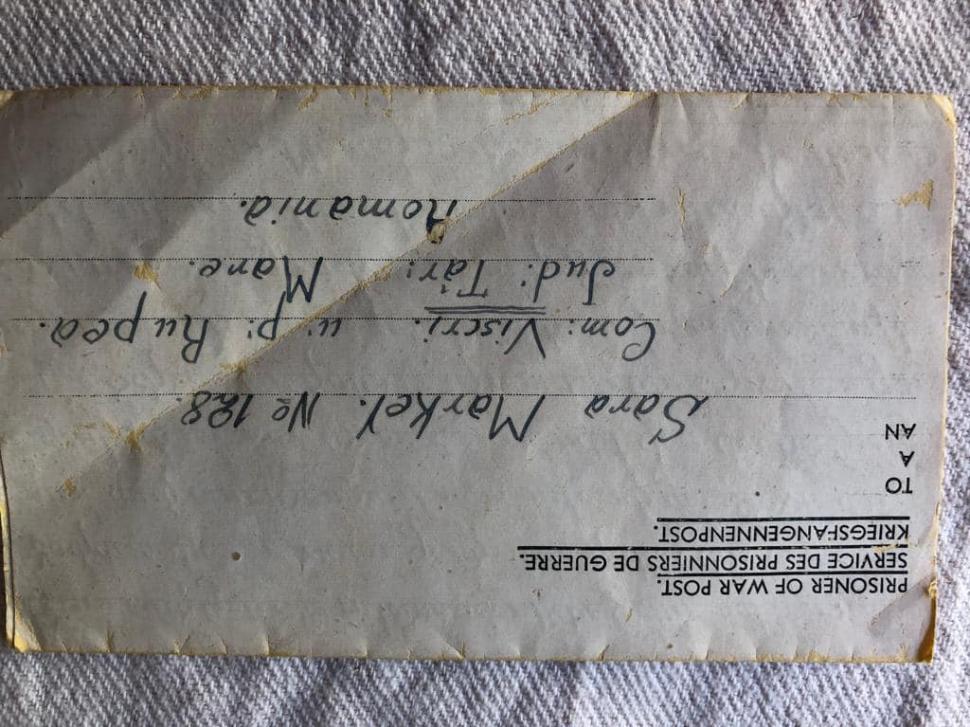 PRISONER OF WAR POST.
SERVICE DES PRISONNIERS DE GUERRE.
KRIEGSFANGENNENPOST.
TO
A
AN
Sara Markel. No 128.
Com: Viscri. u: p: Rupea.
Jud: Târ: Mare.
Romania.